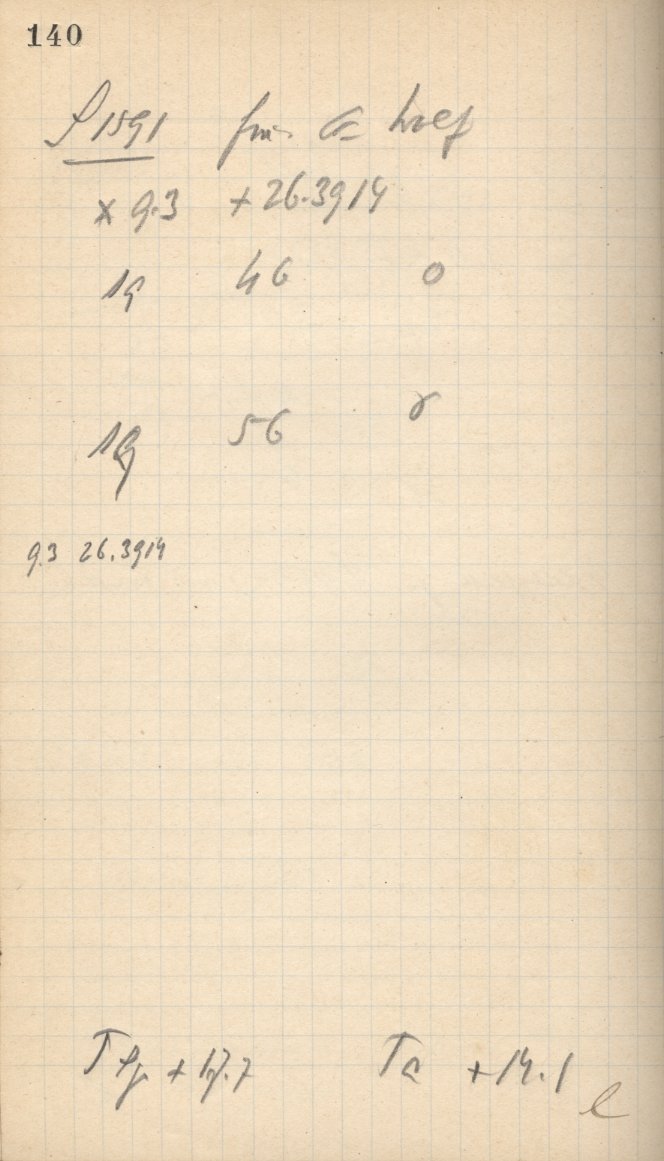 140
P 1591
× 9.3 + 26.3914
19 46 0
19 56 γ
9.3 26.3914
T + 17.7 Ta + 14.1